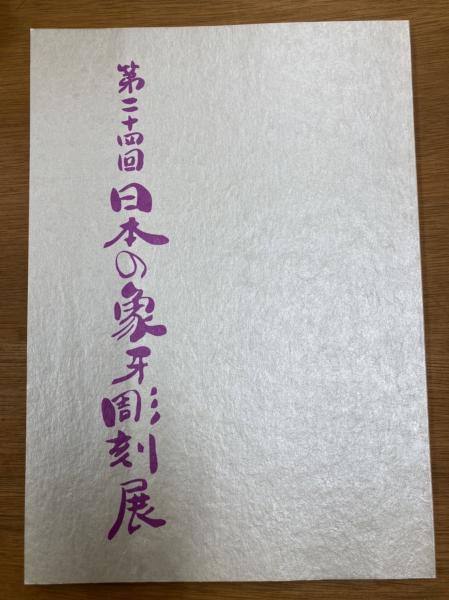 第二十四回 日本の象牙彫刻展